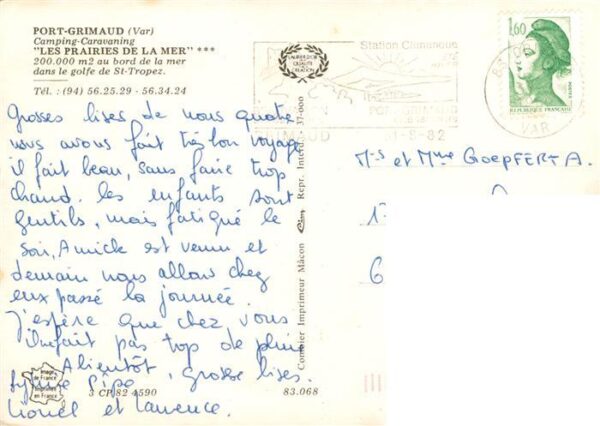 PORT-GRIMAUD (Var)
Camping-Caravaning
"LES PRAIRIES DE LA MER" ***
200.000 m2 au bord de la mer
dans le golfe de St-Tropez.
Tél. : (94) 56.25.29 - 56.34.24
Grosses bises de nous quatre
nous avons fait très bon voyage
il fait beau, sans faire trop
chaud. les enfants sont
gentils, mais fatigué le
soir, Amick est venu et
demain nous allons chez
eux passé la journée.
J'espère que chez vous
il ne fait pas trop de pluie
A bientôt
Sylvine Pipo, grosse bises.
Lionel et Laurence.
Image de France
3 CP 82 4590
83.068
Combier Imprimeur Mâcon
Cim
Repr. Interd.
37-000
LAURIER D'OR
QUALITE
CREATION
Station Climatique
PORT GRIMAUD
GRIMAUD
31-8-82
83
VAR
1,60
POSTES
REPUBLIQUE FRANCAISE
Mrs et Mme GOEPFERT A.
1
6